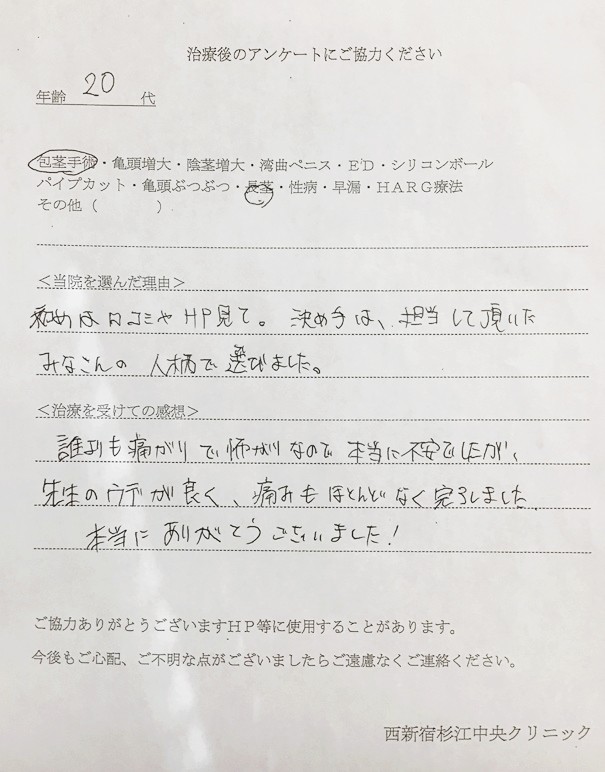 治療後のアンケートにご協力ください
年齢 20 代
包茎手術・亀頭増大・陰茎増大・湾曲ペニス・ED・シリコンボール
パイプカット・亀頭ぶつぶつ・長茎・性病・早漏・HARG療法
その他（　　　　）
＜当院を選んだ理由＞
初めは口コミやHP見て。決め手は、担当して頂いた
みなさんの人柄で選びました。
＜治療を受けての感想＞
誰よりも痛がりで怖がりなので本当に不安でしたが、
先生のウデが良く、痛みもほとんどなく完了しました。
本当にありがとうございました!
ご協力ありがとうございますHP等に使用することがあります。
今後もご心配、ご不明な点がございましたらご遠慮なくご連絡ください。
西新宿杉江中央クリニック